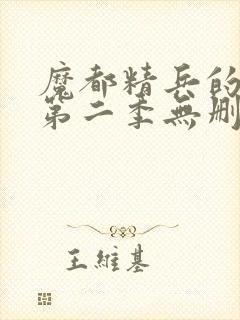 魔都精兵的
第二季無刪
王維基